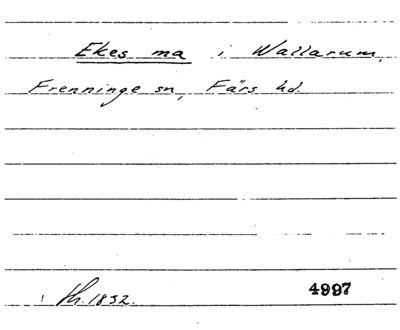 Ekes ma i Wallarum,
Frenninge sn, Färs hd.
th. 1832. 4997